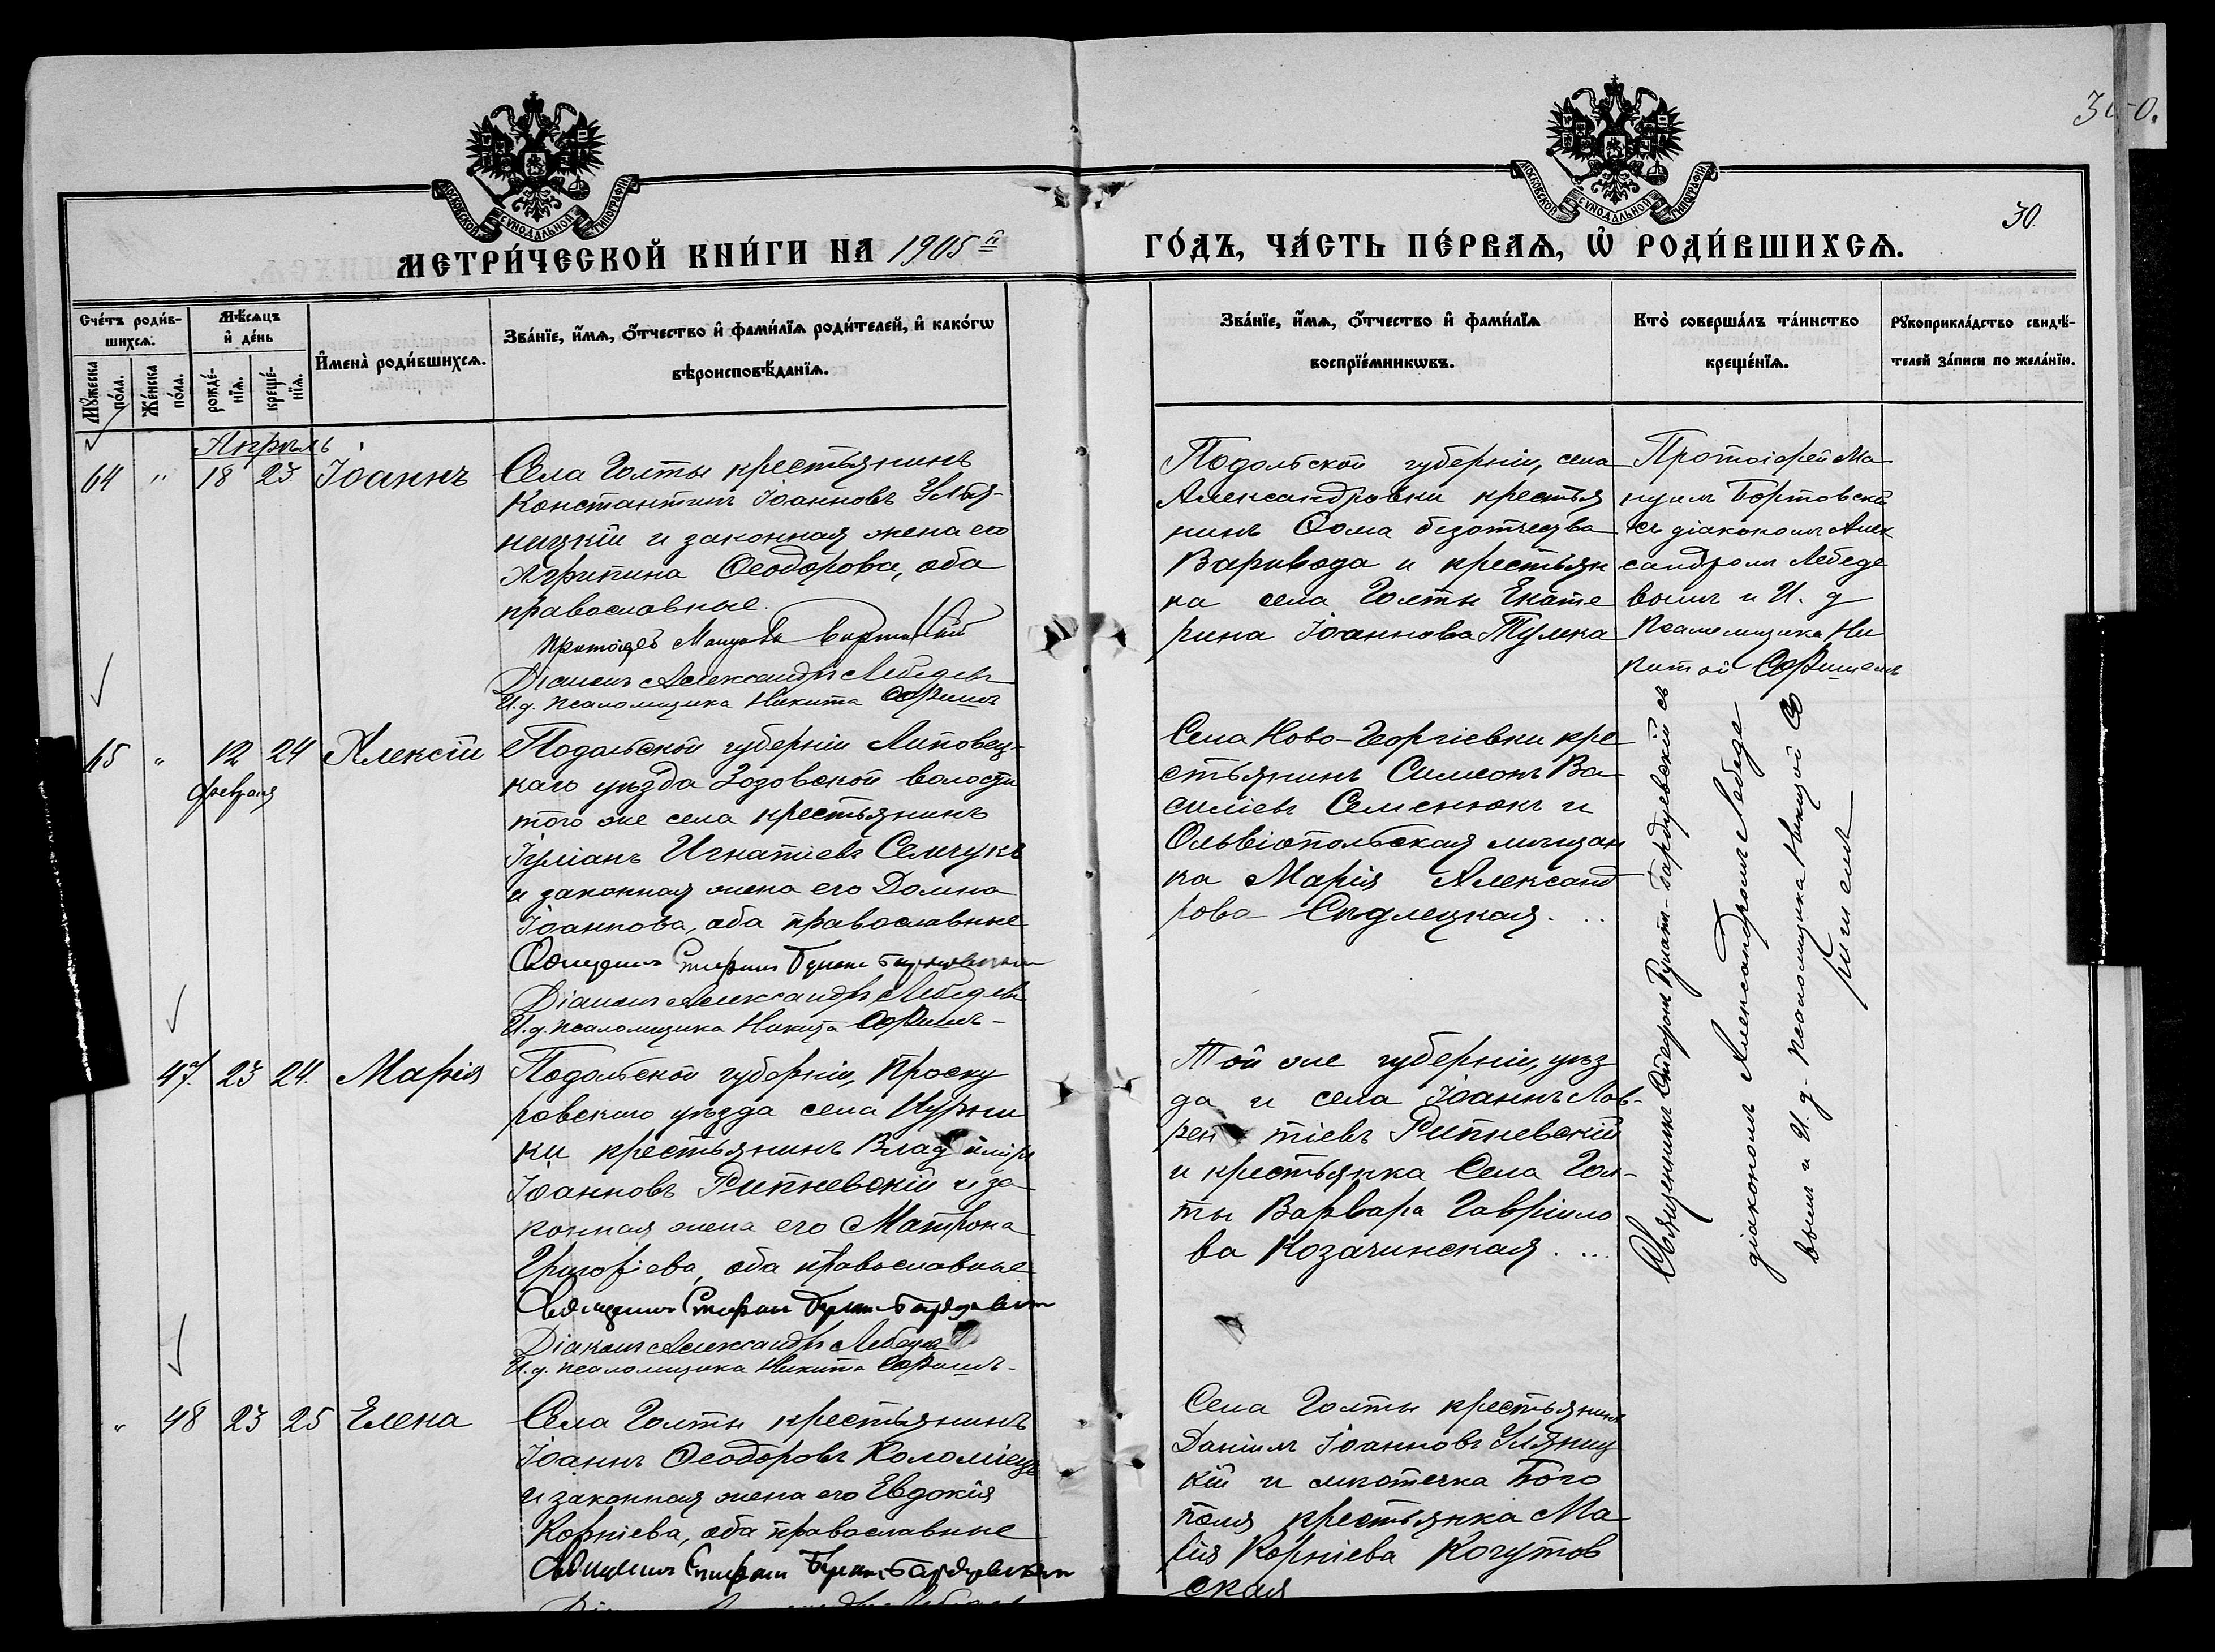 30.
МОСКОВСКОЙ СѴНОДАЛЬНОЙ ТИПОГРАФІИ
МОСКОВСКОЙ СѴНОДАЛЬНОЙ ТИПОГРАФІИ
МЕТРИ́ЧЕСКОЙ КНИ́ГИ НА 1905й
ГО́ДЪ, ЧА́СТЬ ПЕ́РВАѦ, Ѡ РОДИ́ВШИХСѦ.
Сче́тъ роди́в-
шихсѧ.
Мꙋ́жеска по́ла.
Же́нска по́ла.
Мѣ́сѧцъ
и҆ де́нь
рожде́-
нїѧ.
креще́-
нїѧ.
И҆мена̀ роди́вшихсѧ.
Зва́нїе, и҆́мѧ, ѻ҆́тчество и҆ фами́лїѧ роди́телей, и҆ како́гѡ
вѣроисповѣ́данїѧ.
Зва́нїе, и҆́мѧ, ѻ҆́тчество и҆ фами́лїѧ
воспрїе́мникѡвъ.
Кто̀ соверша́лъ та́инство
креще́нїѧ.
Рꙋкоприкла́дство свидѣ́-
телей за́писи по жела́нїю.
Апрѣль
64 " 18 23 Іоаннъ
Села Голты крестьянинъ
Константинъ Іоанновъ Улья-
ницкій и законная жена его
Агрипина Ѳеодорова, оба
православные.
Протоіерей
Діаконъ Александръ Лебедевъ
И.д. псаломщика Никита
Подольской губерніи, села
Александровки крестья
нинъ Ѳома безотчества
Варивода и крестьян
ка села Голты Екате
рина Іоаннова Тулека
Протоіерей Ма
нуилъ Бортовскій
съ діакономъ Алек
сандромъ Лебеде
вымъ и И. д
псаломщика Ни
китой
65 " 12 24 Алексій
февраля
Подольской губерніи Липовец-
каго уѣзда Зозовской волости
того же села крестьянинъ
Іуліанъ Игнатіевъ Семчукъ
и законная жена его Домна
Іоаннова, оба православные
Священникъ Стефанъ
Діаконъ Александръ Лебедевъ
И.д. псаломщика Никита
Села Ново-Георгіевки кре
стьянинъ Симеонъ Ва
силіевъ Семенюкъ и
Ольвіопольская мѣщан
ка Марія Александ
рова Сѣдлецкая. ...
Священникъ Стефанъ съ
діакономъ Александромъ Лебеде
вымъ и И. д. псаломщика Никитой
47. 23 24. Марія
Подольской губерніи, Проску
ровскаго уѣзда села Курни
ки крестьянинъ Владиміръ
Іоанновъ Рипневскій и за
конная жена его Матрона
Григоріева, оба православные
Священникъ Стефанъ
Діаконъ Александръ Лебедевъ
И.д. псаломщика Никита
Той же губерніи, уѣз
да и села Іоаннъ Лав-
рентіевъ Рипневскій
и крестьянка Села Гол-
ты Варвара Гавріило
ва Козачинская. ...
" 48 23 25 Елена
Села Голты крестьянинъ
Іоаннъ Ѳеодоровъ Коломіецъ
и законная жена его Евдокія
Корніева, оба православные
Священникъ Стефанъ
Села Голты крестьянинъ
Даніилъ Іоанновъ Уляниц
кій и мѣстечка Бого
поля крестьянка Ма
рія Корніева Когутов
ская